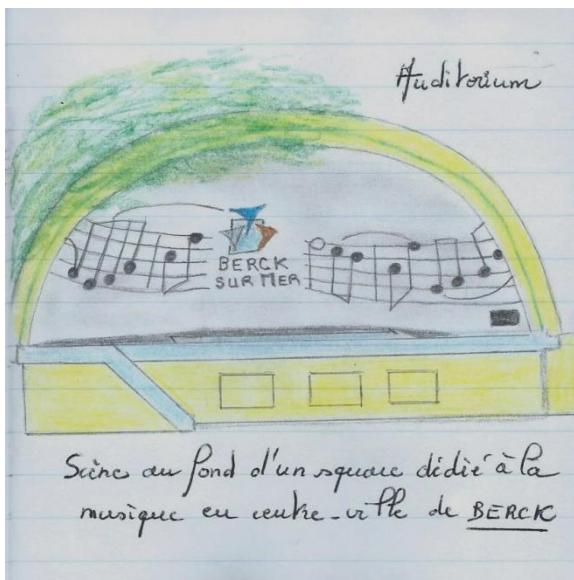 Auditorium
BERCK
SUR MER
Scène au fond d'un square dédié à la
musique en centre-ville de BERCK